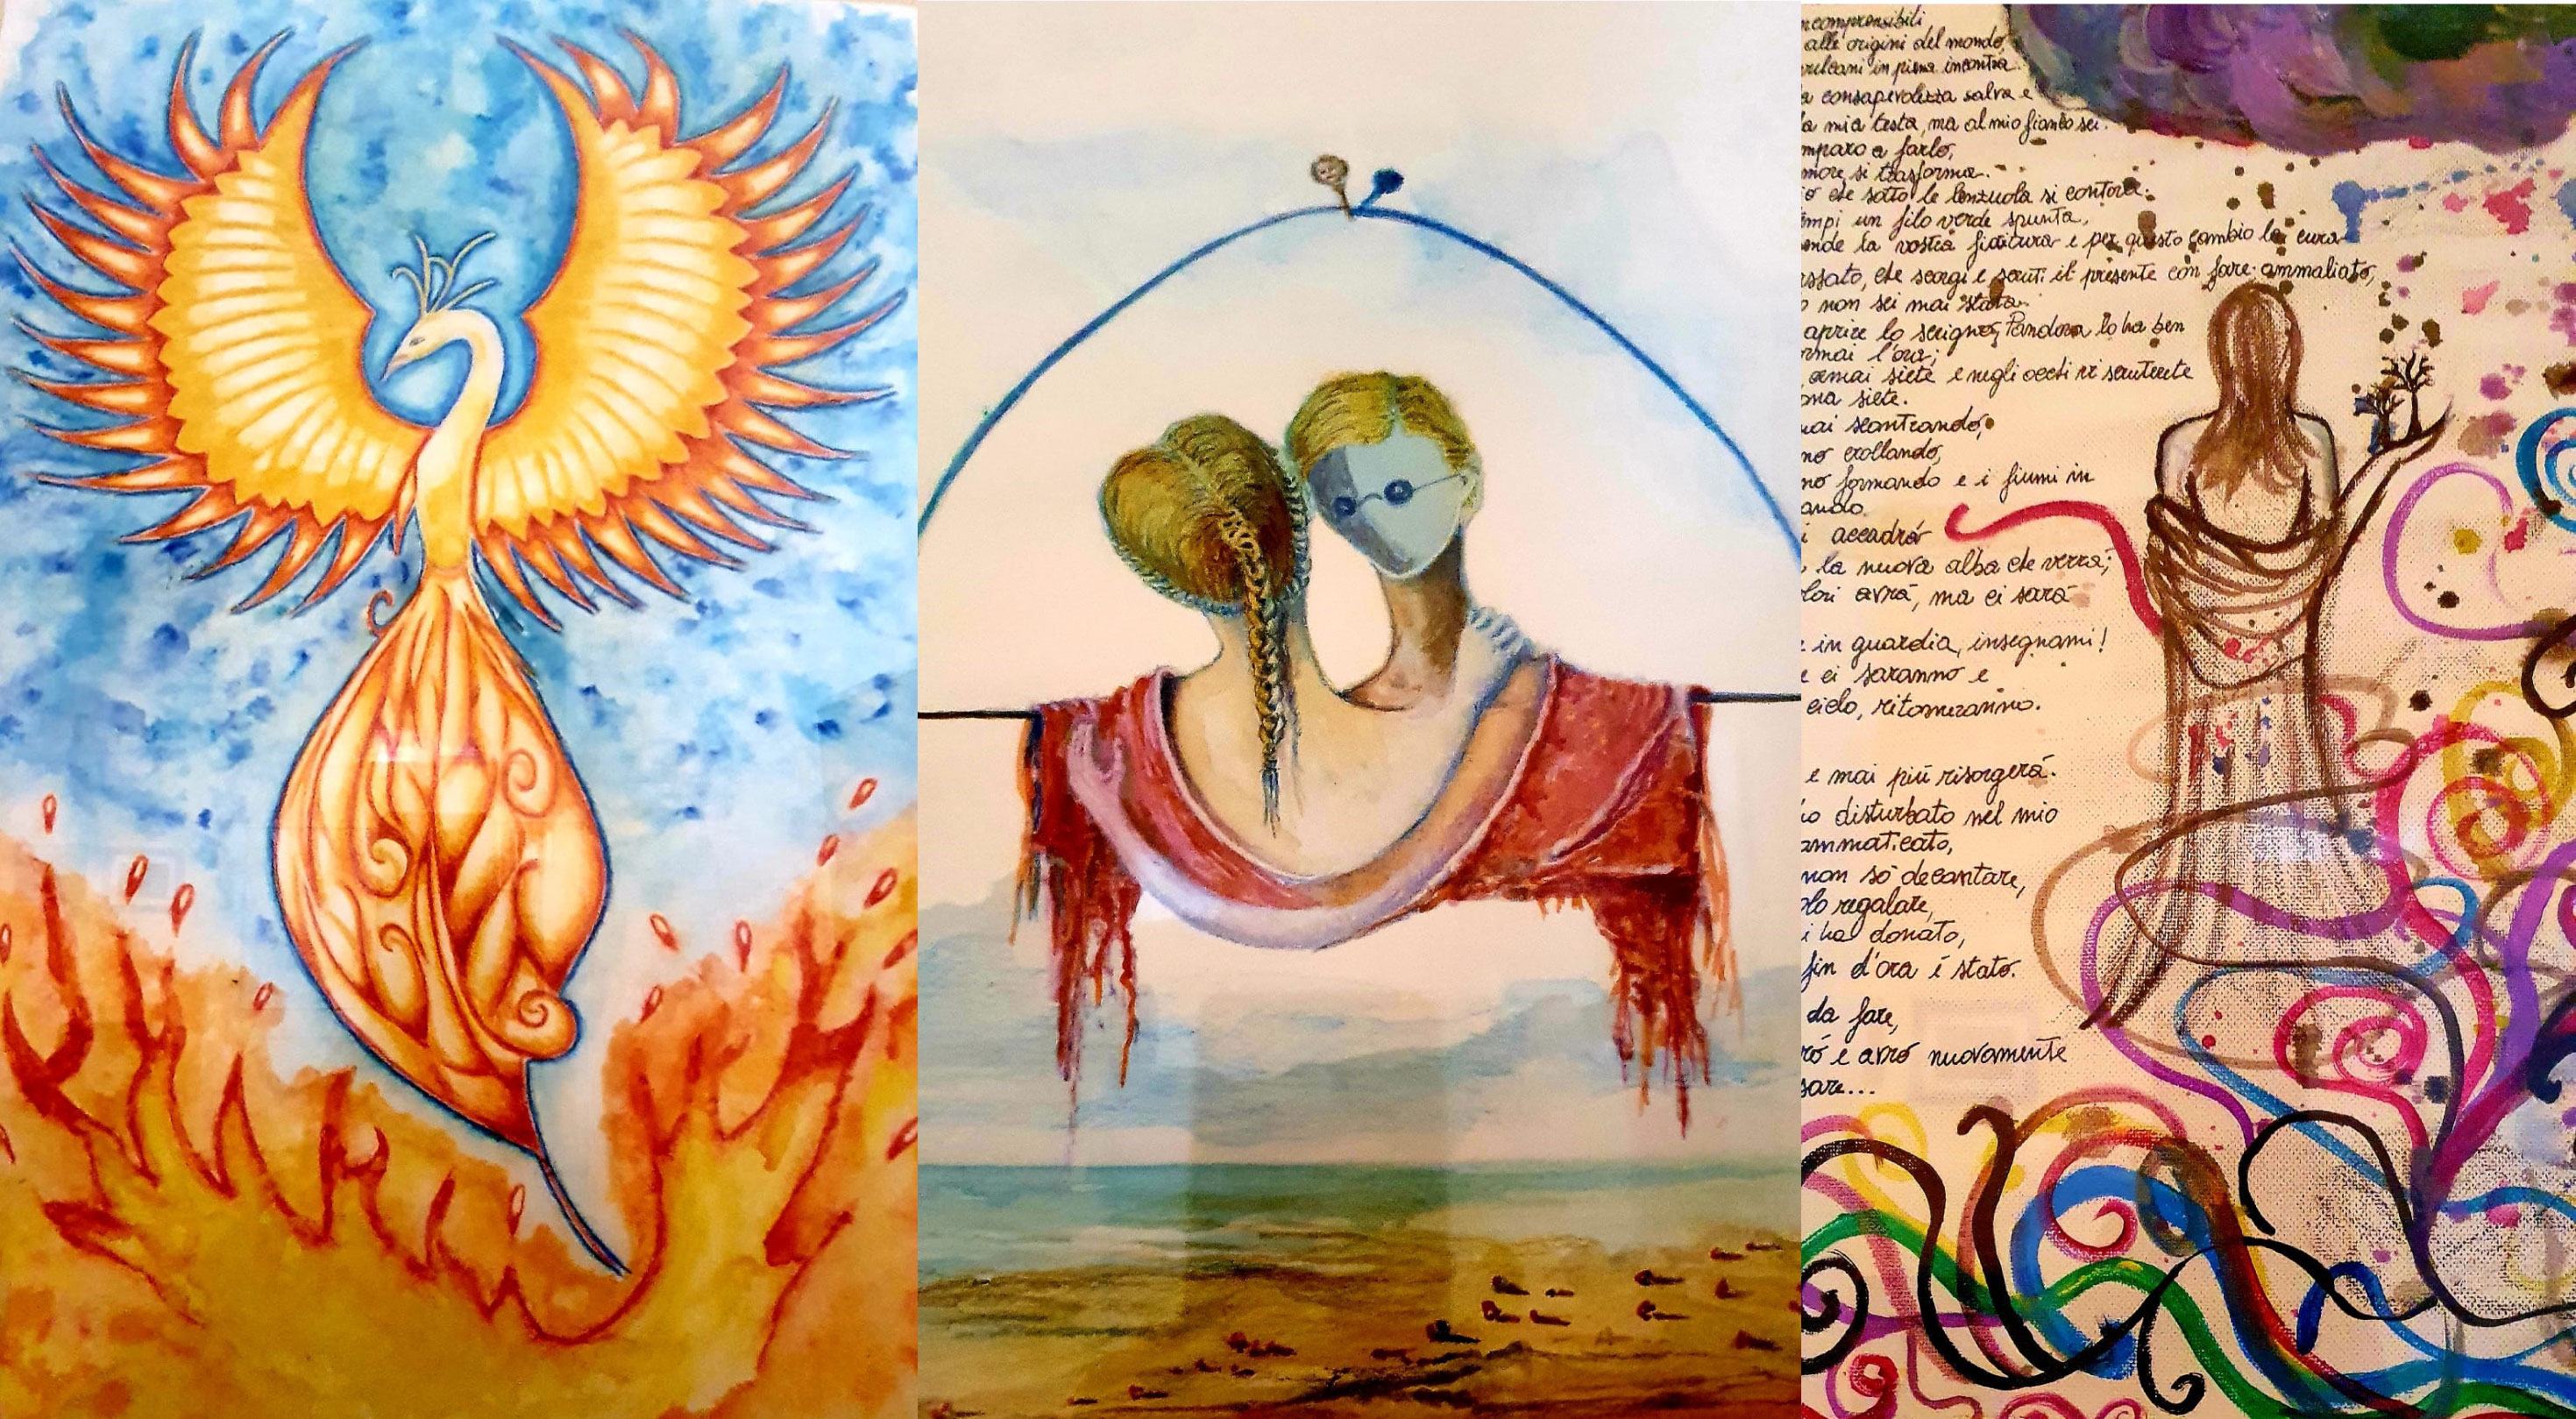 ncomprensibili,
alle origini del mondo,
vulcani in piena incontra.
a consapevolezza salva e
la mia testa, ma al mio fianco sei.
mparo a farlo,
more, si trasforma.
ò che sotto le lenzuola si contora.
empi un filo verde spunta,
ende la vostra fioritura e per questo cambio la cura
assato, che scorgi e scruti il presente con fare ammaliato,
o non sei mai stata.
aprire lo scrigno, Pandora lo ha ben
ormai l'ora;
ormai siete e negli occhi vi scruterete
ona siete.
mai scontrando,
no crollando,
no formando e i fiumi in
ando.
i accadrá
la nuova alba che verrá;
lori avrá, ma ci sará
in guardia, insegnami!
e ci saranno e
cielo, ritorneranno.
e mai piú risorgerá.
io disturbato nel mio
ammaticato,
non só decantare,
olo regalare,
i ha donato,
fin d'ora é stato.
da fare,
ró e avró nuovamente
sare...